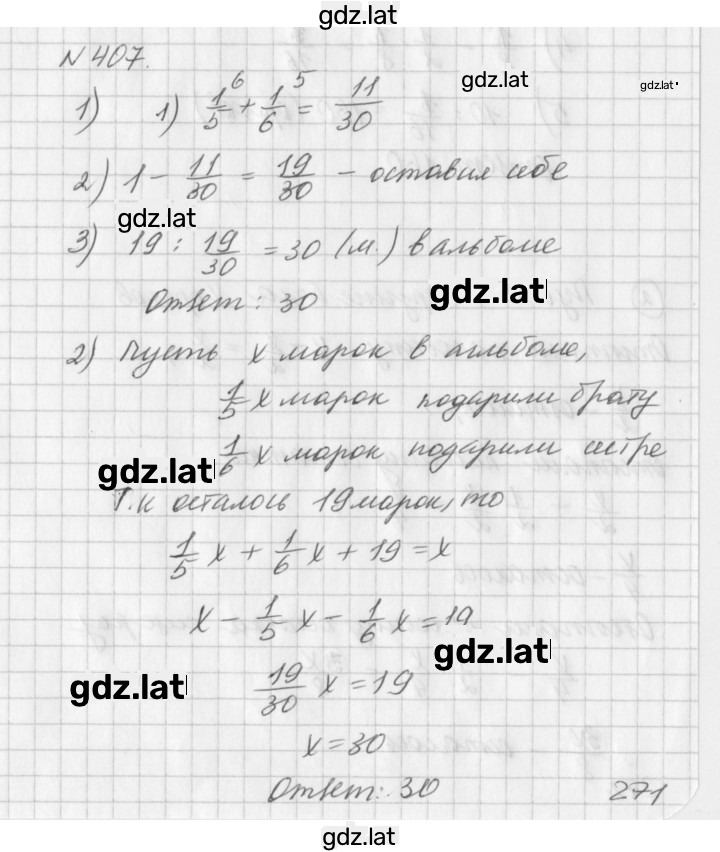 gdz.lat
N 407.
gdz.lat
gdz.lat
1) 1) 1/5 ⁶ + 1/6 ⁵ = 11/30
2) 1 - 11/30 = 19/30 - оставил себе
gdz.lat
3) 19 : 19/30 = 30 (м.) в альбоме
gdz.lat
Ответ: 30
2) Пусть x марок в альбоме,
1/5 x марок подарили брату
1/6 x марок подарили сестре
gdz.lat
Т.к осталось 19 марок, то
1/5 x + 1/6 x + 19 = x
x - 1/5 x - 1/6 x = 19
gdz.lat
gdz.lat
19/30 x = 19
x = 30
Ответ: 30
271
gdz.lat